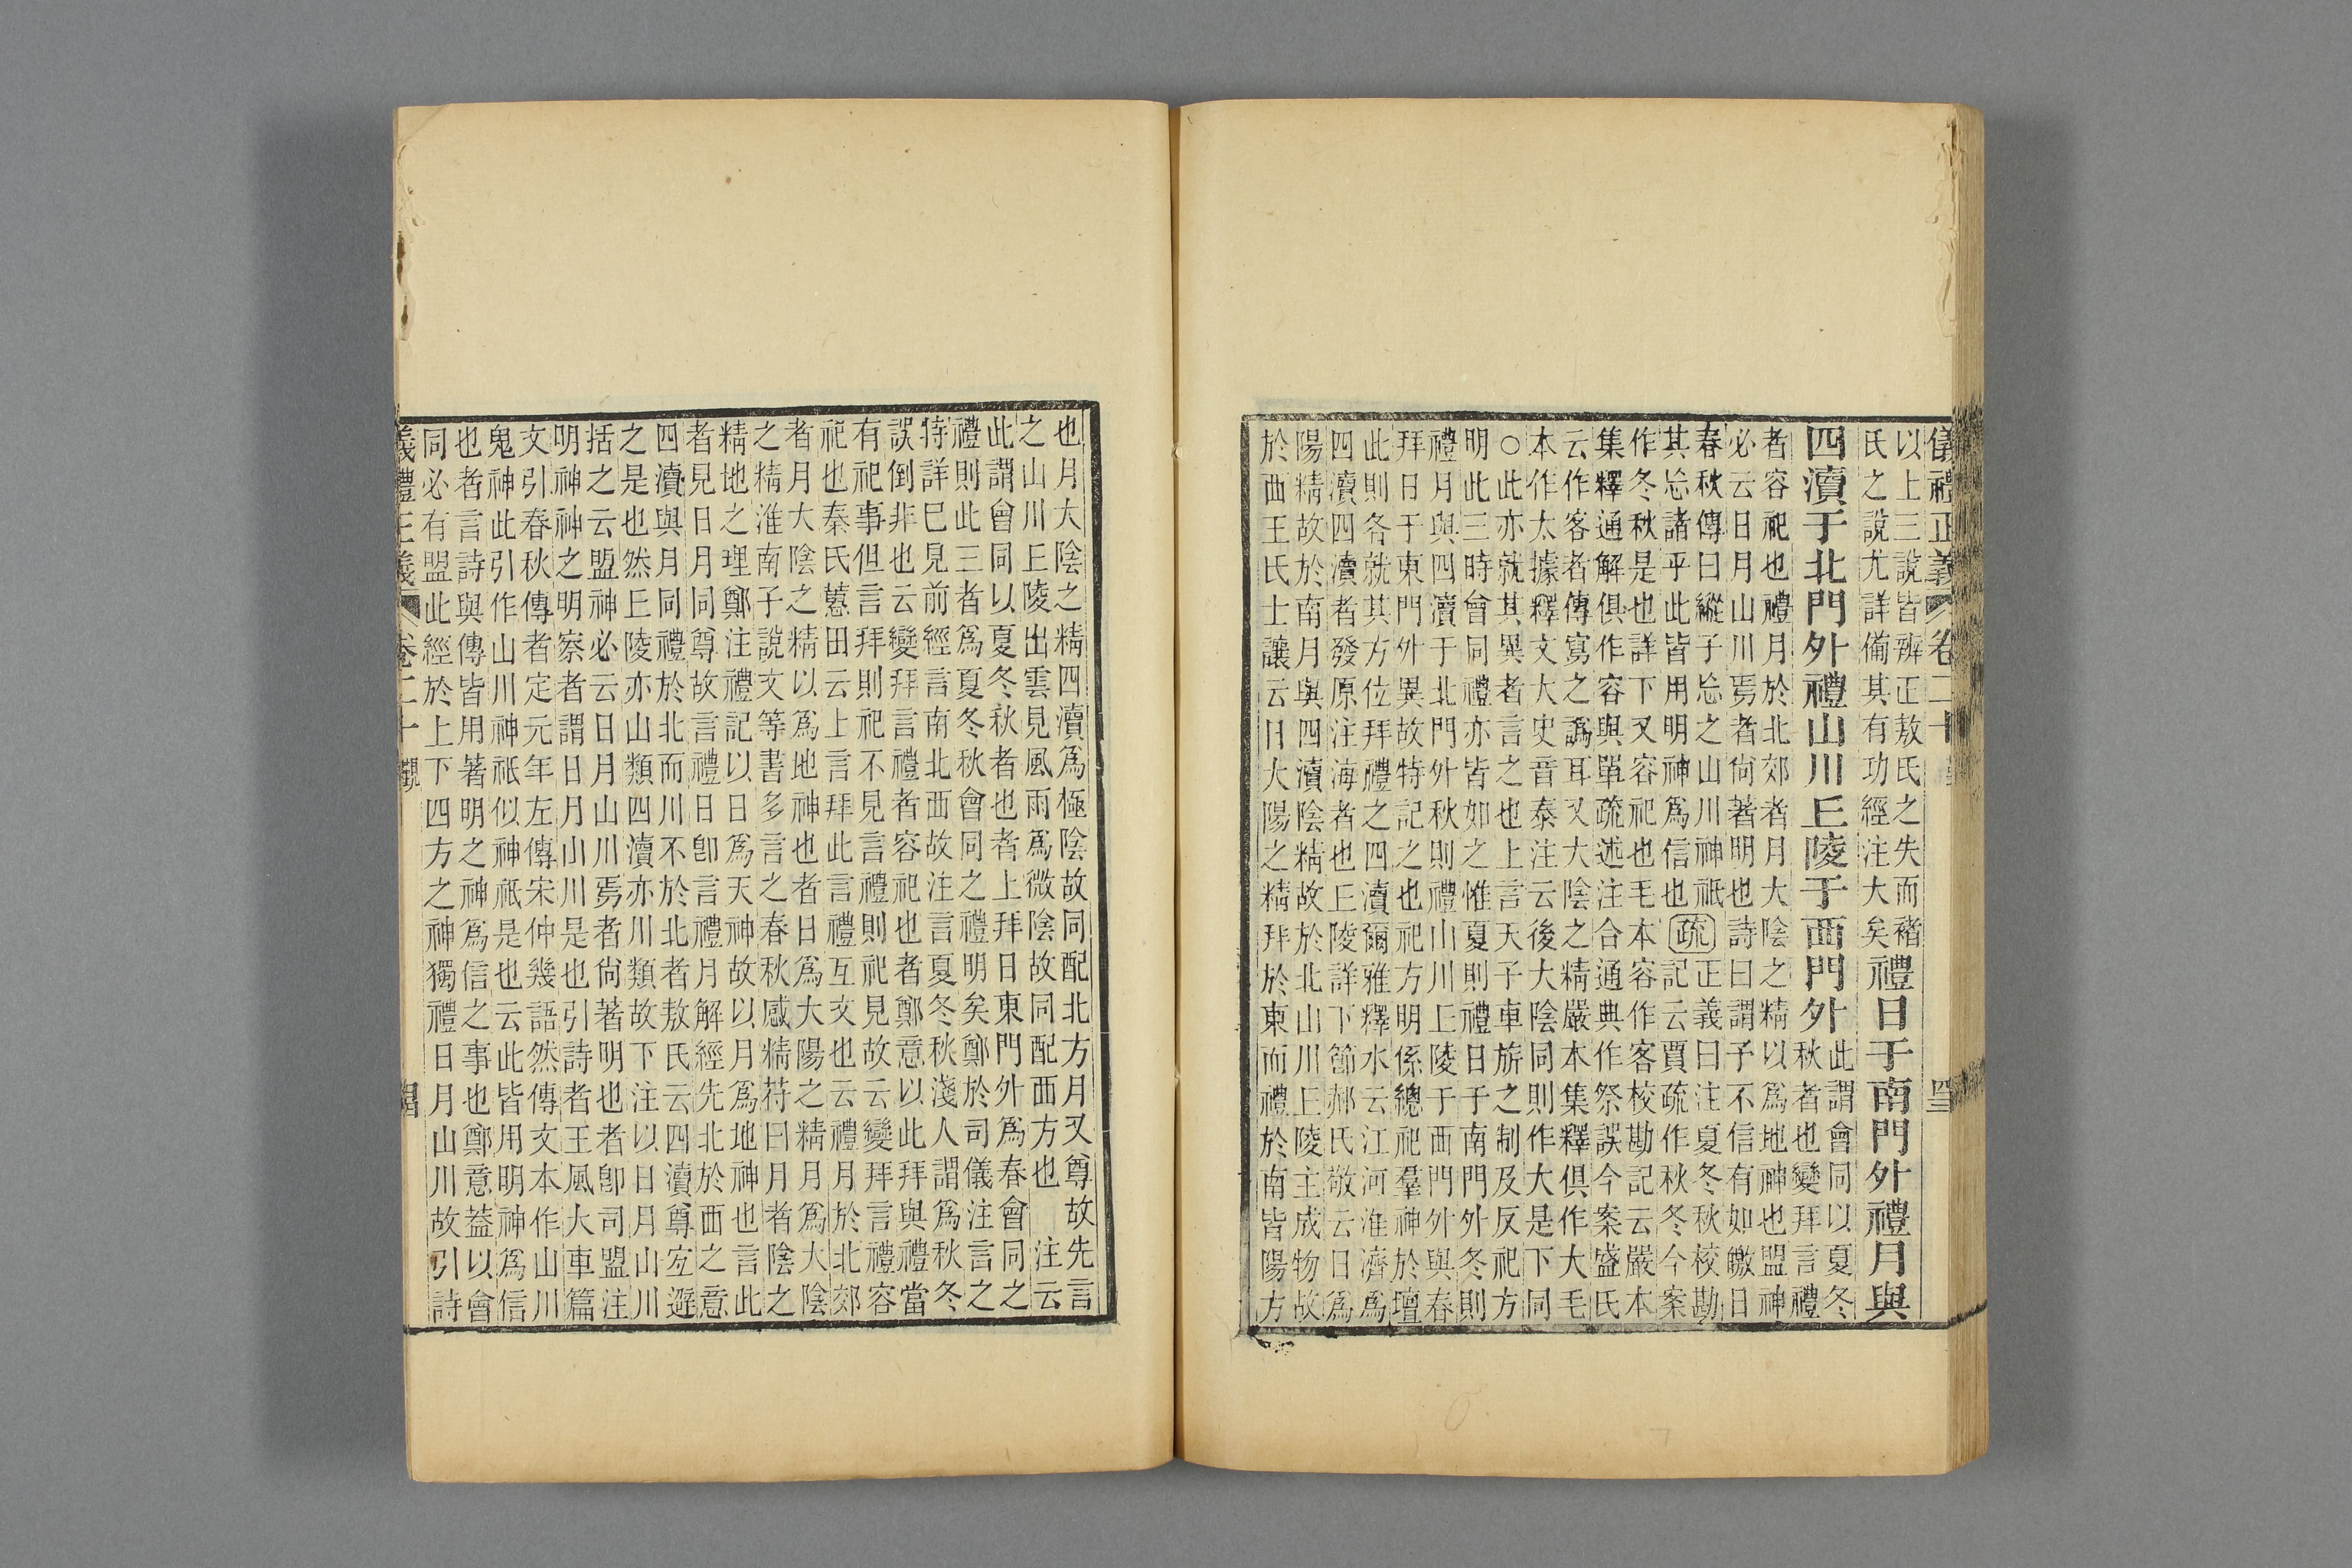 儀禮正義 卷二十
以上三說皆辨正敖氏之失而褚
氏之說尤詳備其有功經注大矣
禮日于南門外禮月與
四瀆于北門外禮山川丘陵于西門外
此謂會同以夏冬
秋者也變拜言禮
者容祀也禮月於北郊者月大陰之精以為地神也盟神
必云日月山川焉者尚著明也詩曰謂予不信有如皦日
春秋傳曰縱子忘之山川神祇
其忘諸乎此皆用明神爲信也
疏
正義曰注夏冬秋校勘
記云賈疏作秋冬今案
作冬秋是也詳下又容祀也毛本容作客校勘記云嚴本
集釋通解俱作容與單疏述注合通典作祭誤今案盛氏
云作客者傳寫之譌耳又大陰之精嚴本集釋俱作大毛
本作太據釋文大史音泰注云後大陰同則作大是下同
○此亦就其異者言之也上言天子車旂之制及反祀方
明此三時會同禮亦皆如之惟夏則禮日于南門外冬則
禮月與四瀆于北門外秋則禮山川丘陵于西門外與春
拜日于東門外異故特記之也祀方明係總祀羣神於壇
此則各就其方位拜禮之四瀆爾雅釋水云江河淮濟爲
四瀆四瀆者發原注海者也丘陵詳下節郝氏敬云日爲
陽精故於南月與四瀆陰精故於北山川丘陵主成物故
於西王氏士讓云日大陽之精拜於東而禮於南皆陽方
也月大陰之精四瀆爲極陰故同配北方月又尊故先言
之山川丘陵出雲見風雨爲微陰故同配西方也 注云
此謂會同以夏冬秋者也者上拜日東門外爲春會同之
禮則此三者爲夏冬秋會同之禮明矣鄭於司儀注言之
特詳巳見前經言南北西故注言夏冬秋淺人謂爲秋冬
誤倒非也云變拜言禮者容祀也者鄭意以此拜與禮當
有祀事但言拜則祀不見言禮則祀見故云變拜言禮容
祀也秦氏蕙田云上言拜此言禮互文也云禮月於北郊
者月大陰之精以爲地神也者日爲大陽之精月爲大陰之
之精淮南子說文等書多言之春秋感精苻曰月者陰之
精地之理鄭注禮記以日爲天神故以月爲地神也言此
者見日月同尊故言禮日卽言禮月解經先北於西之意
四瀆與月同禮於北而川不於北者敖氏云四瀆尊宐避
之是也然丘陵亦山類四瀆亦川類故下注以日月山川
括之云盟神必云日月山川焉者尚著明也者卽司盟注
明神神之明察者謂日月山川是也引詩者王風大車篇
文引春秋傳者定元年左傳宋仲幾語然傳文本作山川
鬼神此引作山川神祇似神祇是也云此皆用明神爲信
也者言詩與傳皆用著明之神爲信之事也鄭意蓋以會
同必有盟此經於上下四方之神獨禮日月山川故引詩